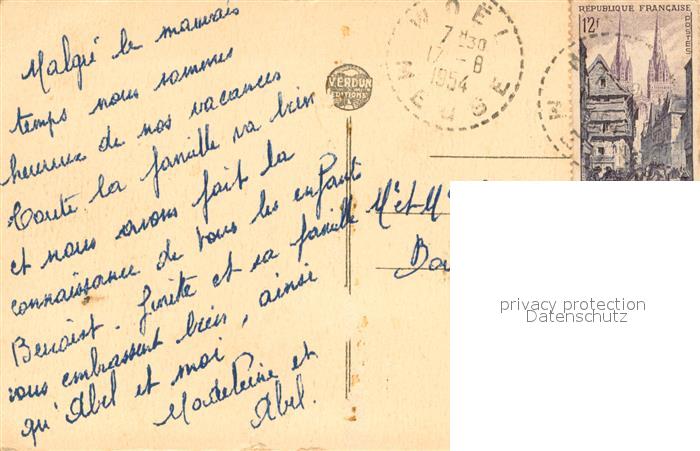 Malgré le mauvais
temps nous sommes
heureux de nos vacances
Toute la famille va bien
et nous avons fait la
connaissance de tous les enfants
Benoist. Ginette et sa famille
vous embrassent bien, ainsi
qu'Abel et moi
Madeleine et
Abel.
VERDUN
EDITIONS
WOEL
7 H30
17 - 8
1954
MEUSE
RÉPUBLIQUE FRANÇAISE
12F
POSTES
Mr et M
privacy protection
Datenschutz